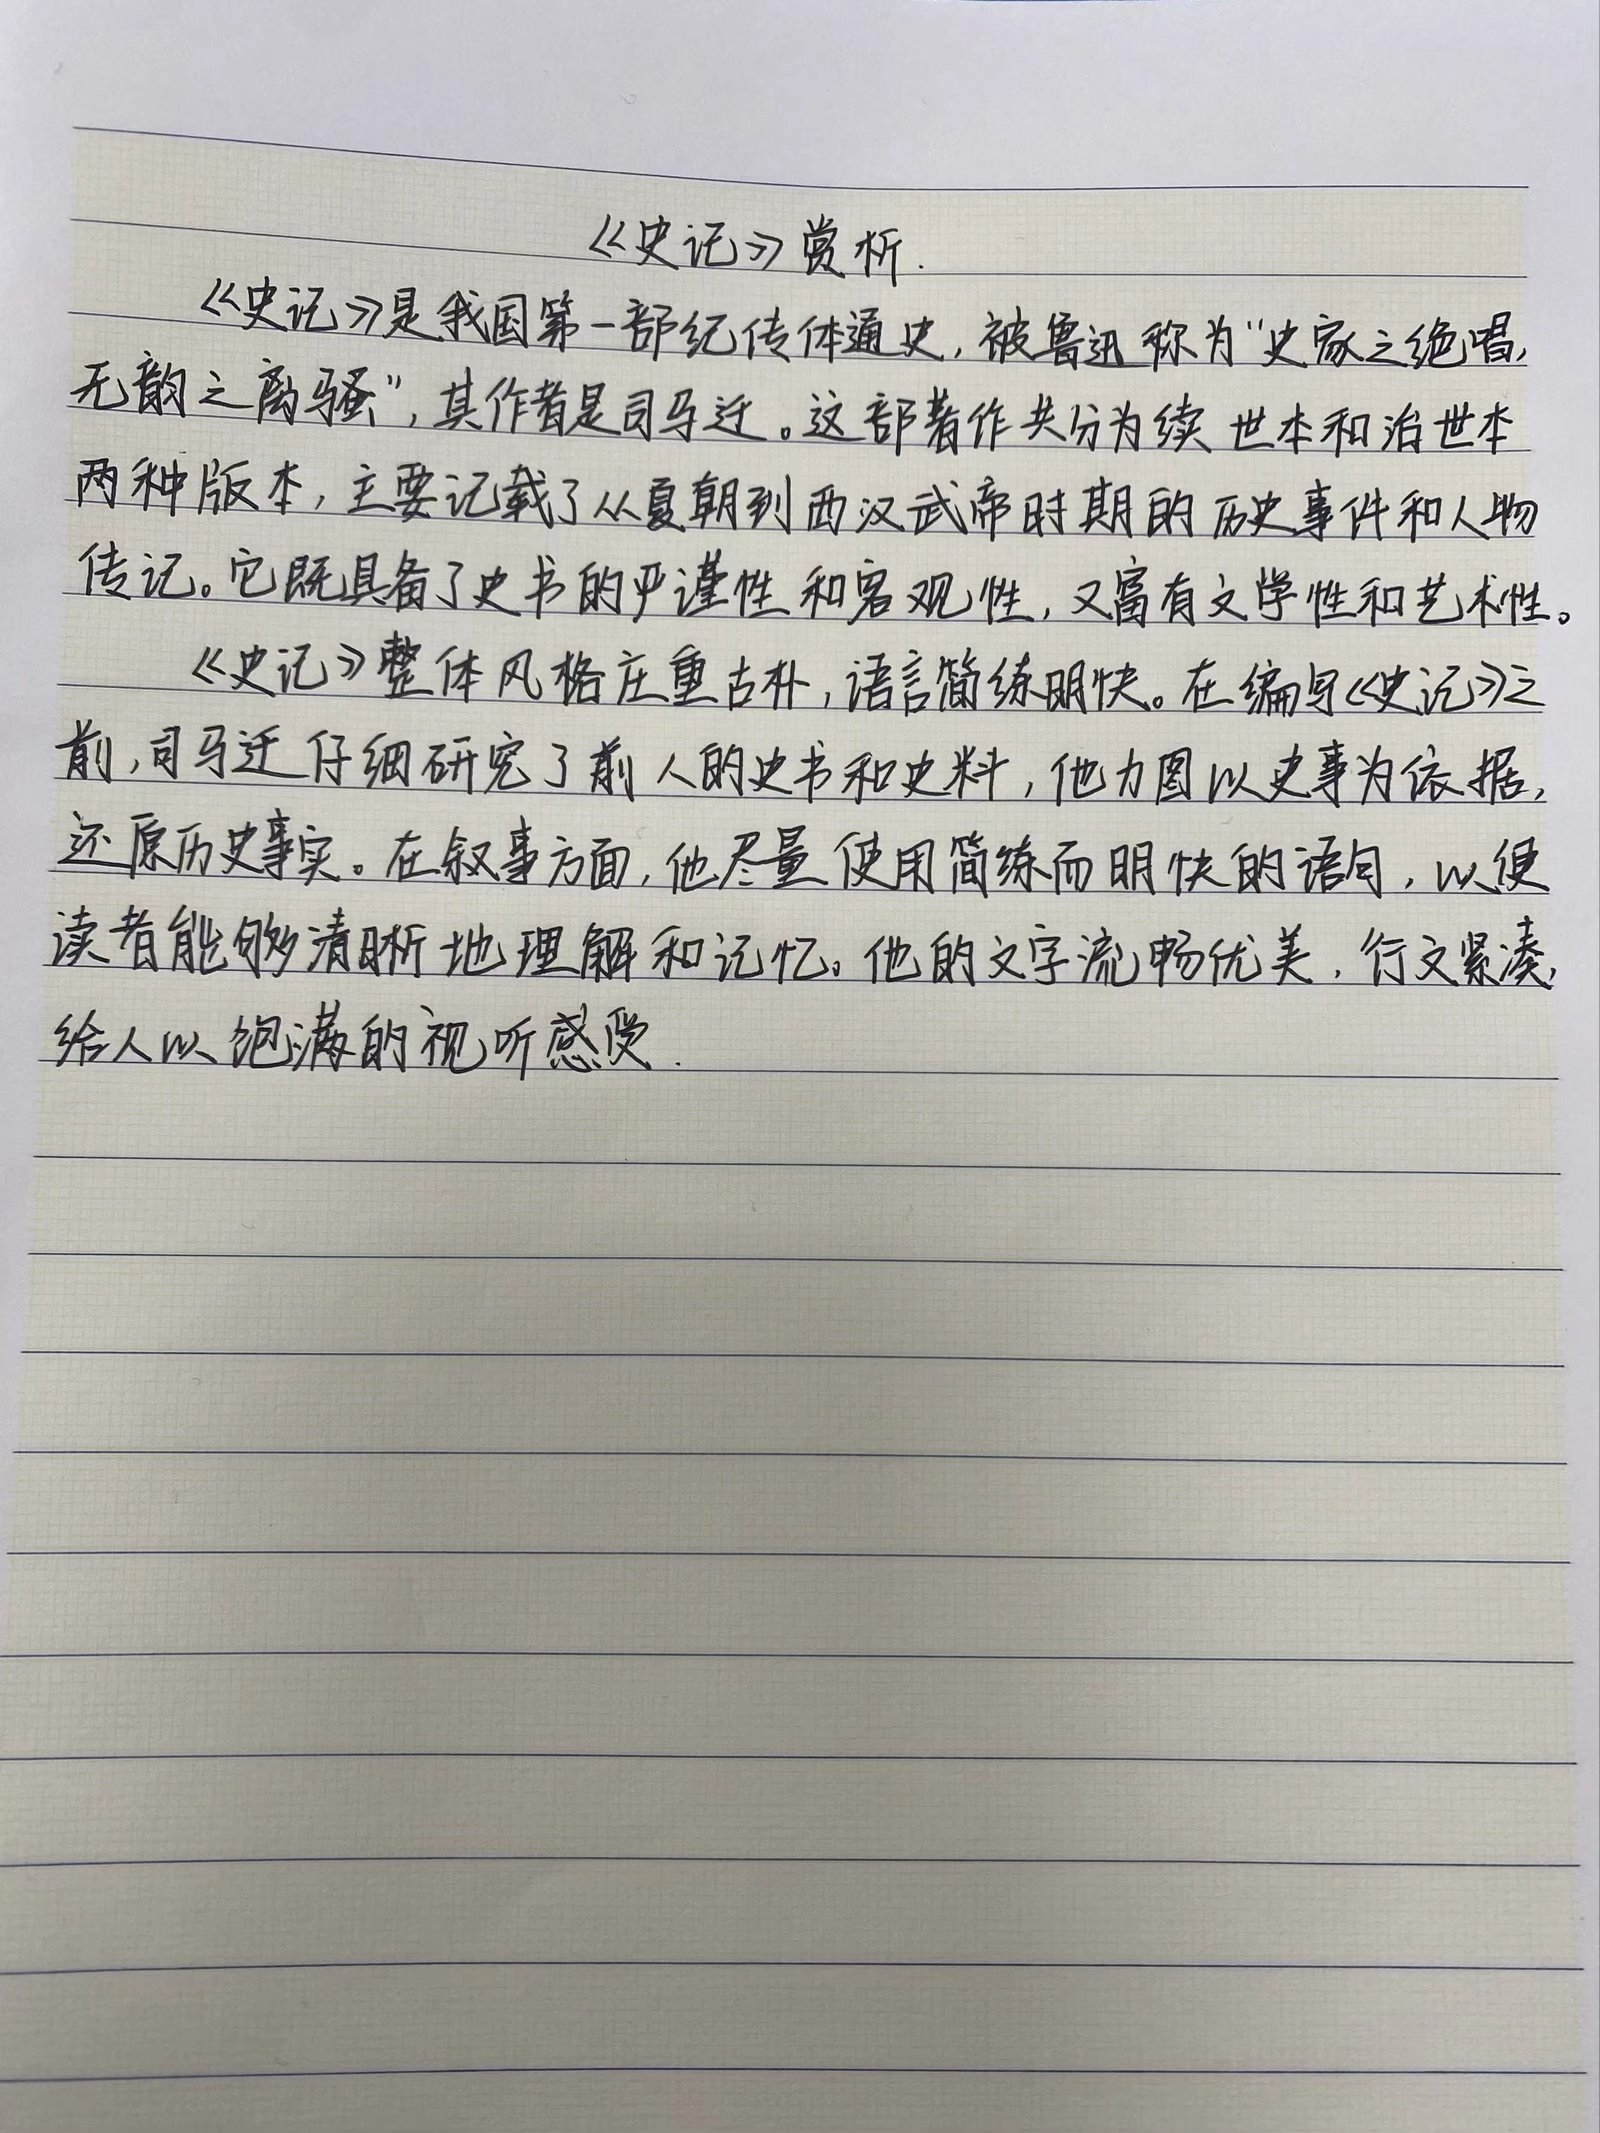 《史记》赏析.
《史记》是我国第一部纪传体通史,被鲁迅称为"史家之绝唱,
无韵之离骚",其作者是司马迁。这部著作共分为续世本和治世本
两种版本,主要记载了从夏朝到西汉武帝时期的历史事件和人物
传记。它既具备了史书的严谨性和客观性,又富有文学性和艺术性。
《史记》整体风格庄重古朴,语言简练明快。在编写《史记》之
前,司马迁仔细研究了前人的史书和史料,他力图以史事为依据,
还原历史事实。在叙事方面,他尽量使用简练而明快的语句,以便
读者能够清晰地理解和记忆。他的文字流畅优美,行文紧凑,
给人以饱满的视听感受.